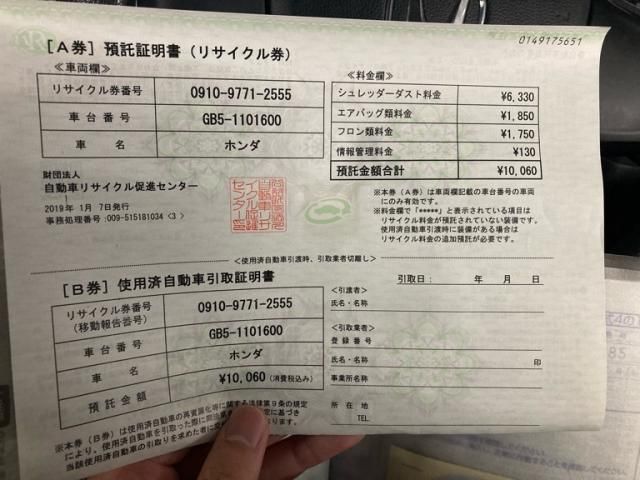 0149175651
[A券] 預託証明書（リサイクル券）
≪車両欄≫
リサイクル券番号 0910-9771-2555
車台番号 GB5-1101600
車名 ホンダ
財団法人
自動車リサイクル促進センター
2019年 1月 7日発行
事務処理番号:009-515181034 <3 >
≪料金欄≫
シュレッダーダスト料金 ¥6,330
エアバッグ類料金 ¥1,850
フロン類料金 ¥1,750
情報管理料金 ¥130
預託金額合計 ¥10,060
※本券（A券）は車両欄記載の車台番号の車両
にのみ有効です。
※料金欄で「*****」と表示されている項目は
リサイクル料金が預託されていない装備です。
使用済自動車引渡時に装備がある場合は
リサイクル料金の追加預託が必要です。
<使用済自動車引渡時、引取業者切離し>
[B券] 使用済自動車引取証明書
リサイクル券番号
(移動報告番号) 0910-9771-2555
車台番号 GB5-1101600
車名 ホンダ
預託金額 ¥10,060 (消費税込み)
※本券（B券）は使用済自動車の再資源化等に関する法律第9条の規定
により、使用済自動車を引取った際に
当該使用済自動車の引取りを求めた者に
引取日： 年 月 日
<引渡者>
氏名・名称
<引取業者>
登録番号
氏名・名称 印
事業所名称
所在地
TEL
85